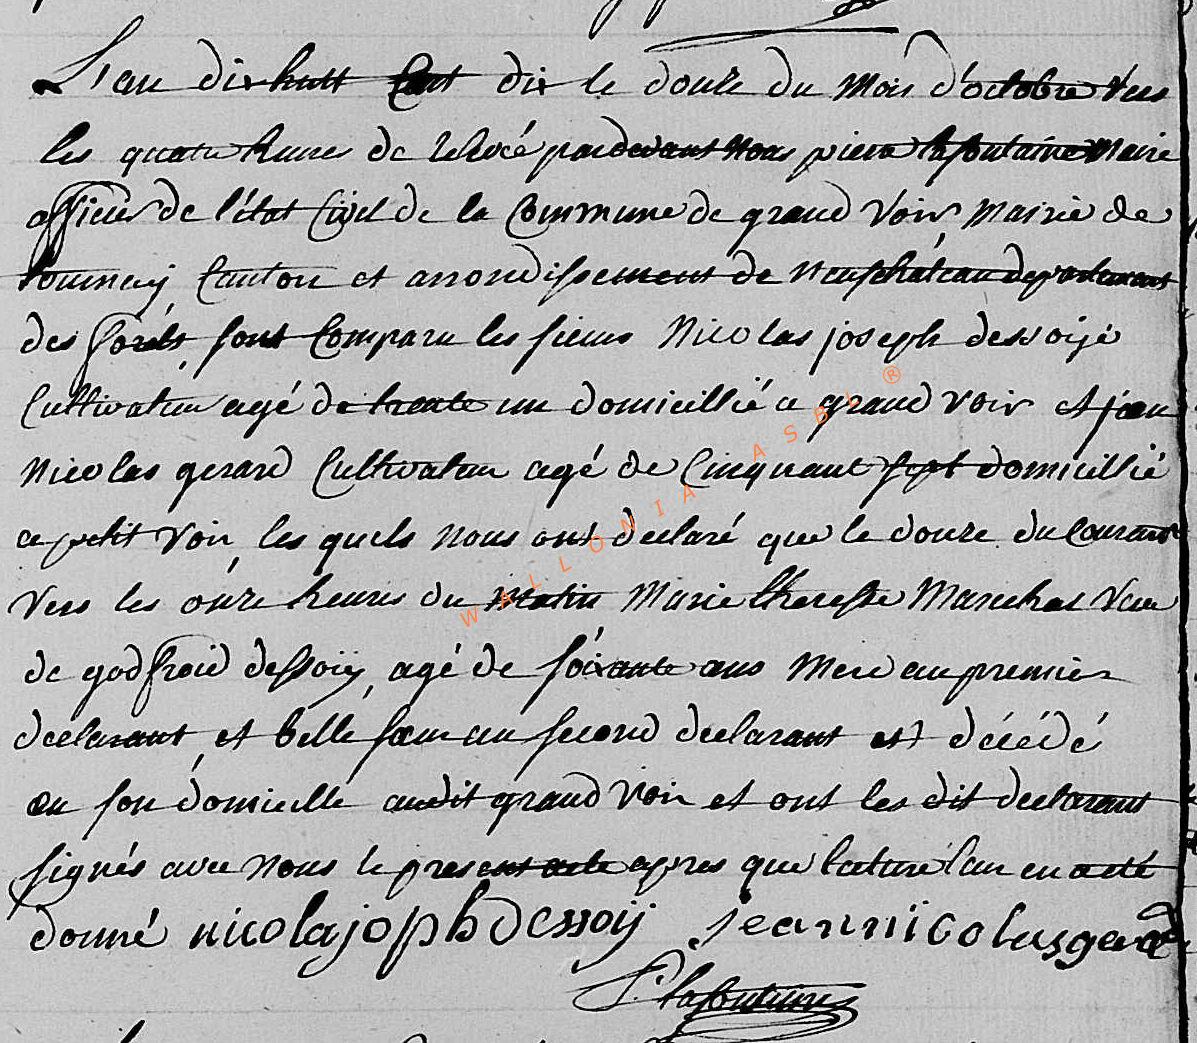 L'an dix huit Cent dix le douze du mois d'octobre vers
les quatre heures de relevé pardevant nous piere lafontaine Maire
officier de l'état Civil de la Commune de grand voir Mairie de
tournay Canton et arrondissement de neufchâteau departement
des forêts sont Comparu les sieurs Nicolas joseph dessoije
Cultivateur agé de trente un domicillié a grand voir et jean
Nicolas gerard Cultivateur agé de Cinquant sept domicillié
a petit voir les quels nous ont declaré que le douze du Courant
vers les onze heures du matin Marie theresse Marechal veu
de godfroid dessoij agé de soixante ans Mere au premier
declarant et belle soeur au second declarant est décédé
en son domicille audit grand voir et ont les dit declarant
signés avec nous le present acte apres que lecture l'eur en a eté
donné nicolajophdessoij jeannicolasgerard
P. lafontaine
WALLONIA ASBL ®